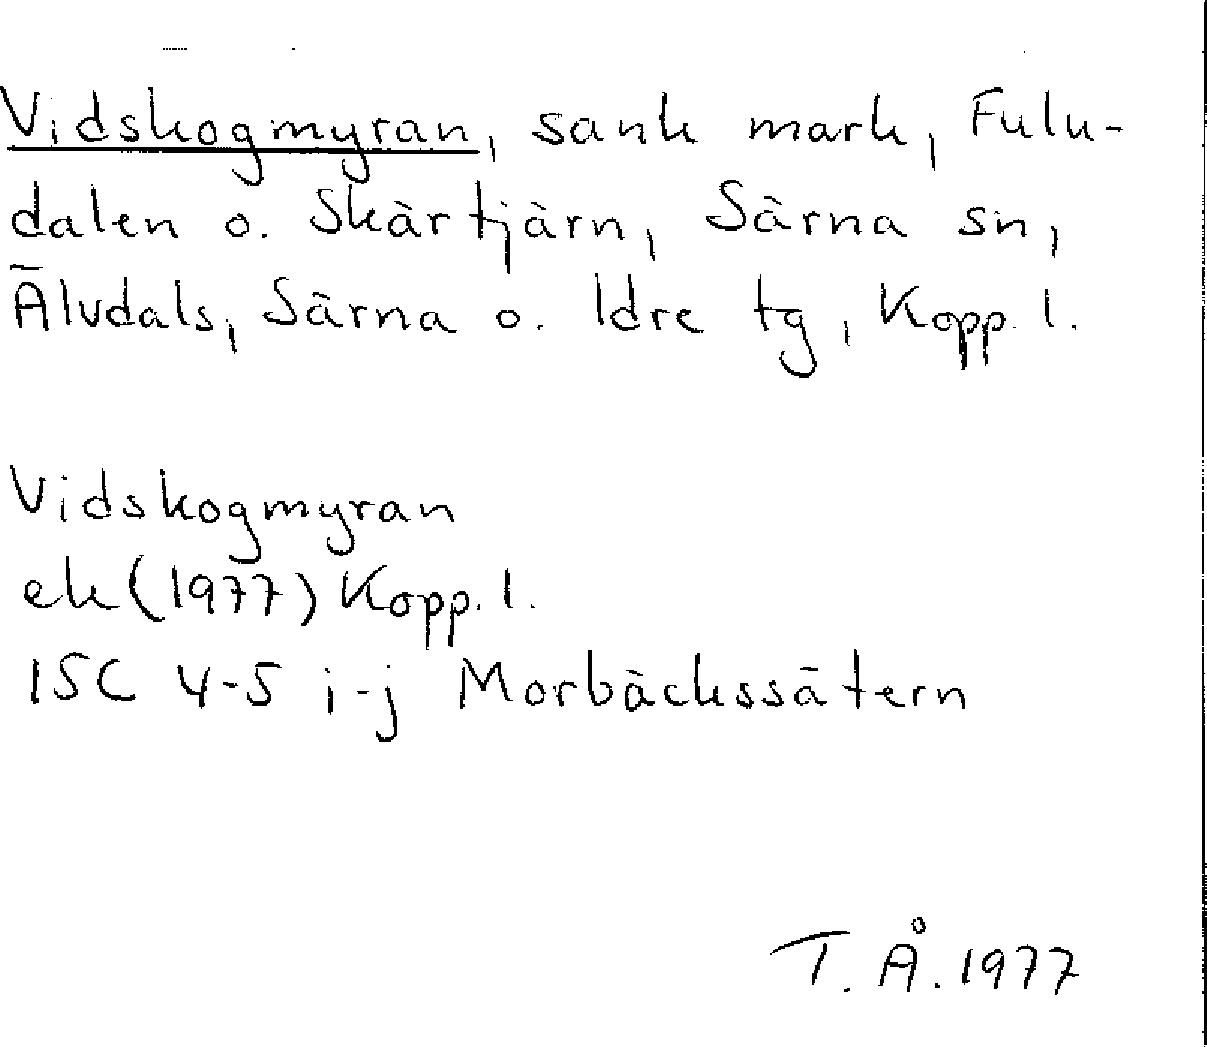 Vidskogmyran, sank mark, Fulu-
dalen o. Skärtjärn, Särna sn,
Älvdals, Särna o. Idre tg, Kopp. l.
Vidskogmyran
ek (1977) Kopp. l.
15C 4-5 i-j Morbäckssätern
T. Å. 1977